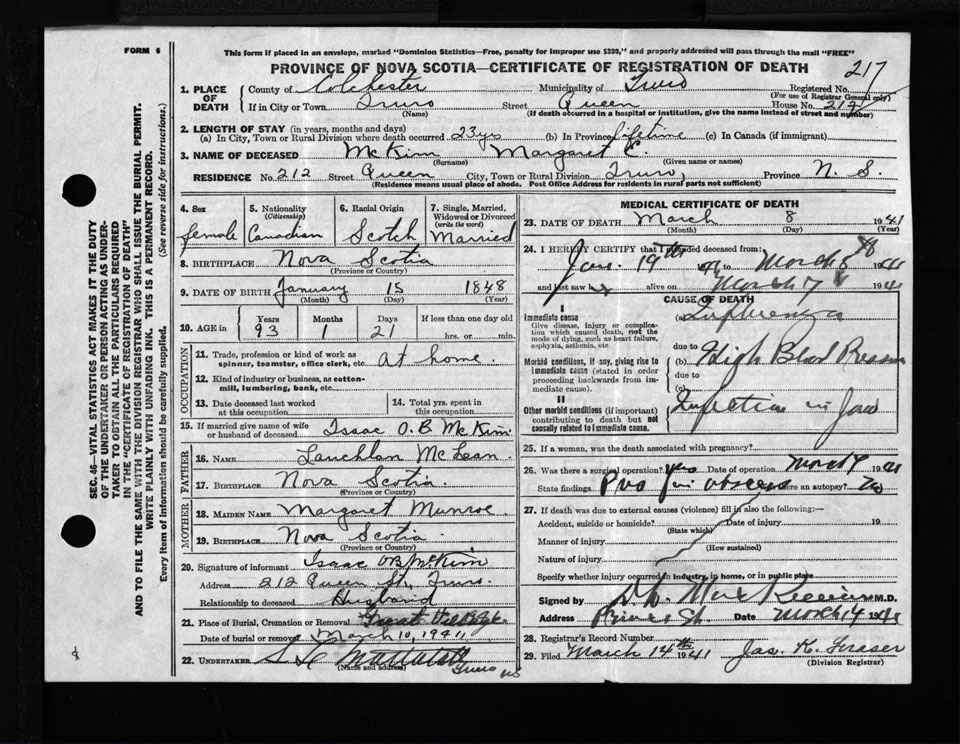 FORM 6
This form if placed in an envelope, marked "Dominion Statistics—Free, penalty for improper use $300," and properly addressed will pass through the mail "FREE"
PROVINCE OF NOVA SCOTIA—CERTIFICATE OF REGISTRATION OF DEATH
217
1. PLACE OF DEATH County of Colchester Municipality of Truro Registered No.
(For use of Registrar General only)
If in City or Town Truro Street Queen House No. 212
(Name) (If death occurred in a hospital or institution, give the name instead of street and number)
2. LENGTH OF STAY (in years, months and days)
(a) In City, Town or Rural Division where death occurred 23 ys (b) In Province lifetime (c) In Canada (if immigrant)
3. NAME OF DECEASED McKim Margaret C.
(Surname) (Given name or names)
RESIDENCE No. 212 Street Queen City, Town or Rural Division Truro, Province N. S.
(Residence means usual place of abode. Post Office Address for residents in rural parts not sufficient)
4. Sex female
5. Nationality (Citizenship) Canadian
6. Racial Origin Scotch
7. Single, Married, Widowed or Divorced (write the word) Married
8. BIRTHPLACE Nova Scotia
(Province or Country)
9. DATE OF BIRTH January 15 1848
(Month) (Day) (Year)
10. AGE in Years 93 Months 1 Days 21 If less than one day old
hrs. or min.
OCCUPATION
11. Trade, profession or kind of work as spinner, teamster, office clerk, etc. at home.
12. Kind of industry or business, as cotton-mill, lumbering, bank, etc.
13. Date deceased last worked at this occupation
14. Total yrs. spent in this occupation
15. If married give name of wife or husband of deceased Isaac O.B McKim
FATHER
16. NAME Lauchlan McLean.
17. BIRTHPLACE Nova Scotia.
(Province or Country)
MOTHER
18. MAIDEN NAME Margaret Munroe
19. BIRTHPLACE Nova Scotia.
(Province or Country)
20. Signature of informant Isaac OB McKim
Address 212 Queen St, Truro.
Relationship to deceased Husband
21. Place of Burial, Cremation or Removal Great Village
Date of burial or removal March 10, 1941
22. UNDERTAKER
(Name and address) Truro NS
MEDICAL CERTIFICATE OF DEATH
23. DATE OF DEATH March 8 1941
(Month) (Day) (Year)
24. I HEREBY CERTIFY that I attended deceased from:
Jan. 19th 41 to March 8 1941
and last saw alive on March 7 1941
CAUSE OF DEATH
I
Immediate cause
Give disease, injury or complication which caused death, not the mode of dying, such as heart failure, asphyxia, asthenia, etc.
(a) Influenza
due to
Morbid conditions, if any, giving rise to immediate cause (stated in order proceeding backwards from immediate cause).
(b) High Blood Pressure
due to
(c)
II
Other morbid conditions (if important) contributing to death but not causally related to immediate cause.
Infection in Jaw
25. If a woman, was the death associated with pregnancy?
26. Was there a surgical operation? yes Date of operation March 7 1941
State findings Pus from abscess Was there an autopsy? No
27. If death was due to external causes (violence) fill in also the following:—
Accident, suicide or homicide? Date of injury 19
(State which)
Manner of injury
(How sustained)
Nature of injury
Specify whether injury occurred in industry, in home, or in public place
Signed by M.D.
Address Prince St. Date March 14 1941
28. Registrar's Record Number
29. Filed March 14th 1941 Jas. K. Fraser
(Division Registrar)
SEC. 46—VITAL STATISTICS ACT MAKES IT THE DUTY
OF THE UNDERTAKER OR PERSON ACTING AS UNDER-
TAKER TO OBTAIN ALL THE PARTICULARS REQUIRED
IN THE "CERTIFICATE OF REGISTRATION OF DEATH"
AND TO FILE THE SAME WITH THE DIVISION REGISTRAR WHO SHALL ISSUE THE BURIAL PERMIT.
WRITE PLAINLY WITH UNFADING INK. THIS IS A PERMANENT RECORD.
Every item of information should be carefully supplied. (See reverse side for instructions.)